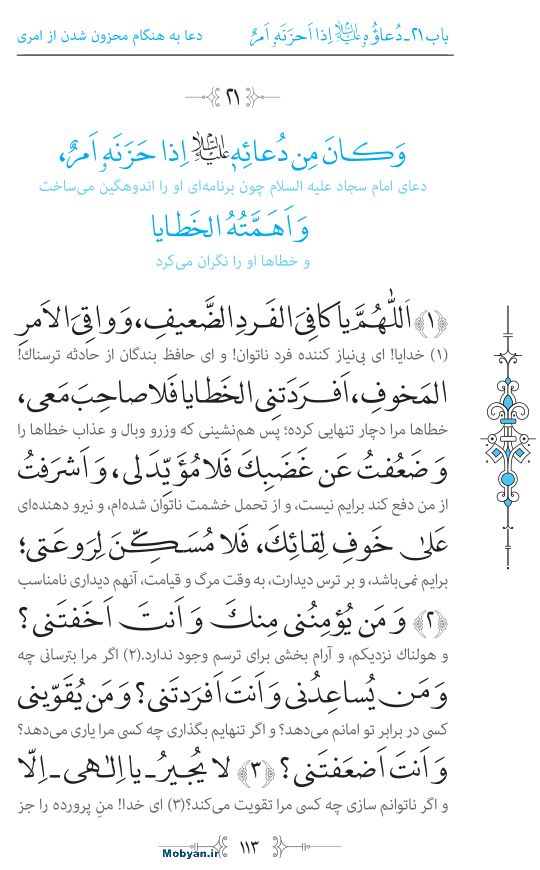 باب ۲۱ـ دُعاؤُهُ علیه‌السلام اِذا اَحزَنَهُ اَمرٌ
دعا به هنگام محزون شدن از امری
۲۱
وَكانَ مِن دُعائِهِ علیه‌السلام اِذا حَزَنَهُ اَمرٌ،
دعای امام سجاد علیه السلام چون برنامه‌ای او را اندوهگین می‌ساخت
وَ اَهَمَّتهُ الخَطايا
و خطاها او را نگران می‌کرد
﴿۱﴾ اَللّٰهُمَّ يا كافِىَ الفَردِ الضَّعيفِ، وَ واقِىَ الاَمرِ
(۱) خدایا! ای بی‌نیاز کننده فرد ناتوان! و ای حافظ بندگان از حادثه ترسناك!
المَخوفِ، اَفرَدَتنِى الخَطايا فَلا صاحِبَ مَعى،
خطاها مرا دچار تنهایی کرده؛ پس هم‌نشینی که وزرو وبال و عذاب خطاها را
وَ ضَعُفتُ عَن غَضَبِكَ فَلا مُؤَيِّدَ لى، وَ اَشرَفتُ
از من دفع کند برایم نیست، و از تحمل خشمت ناتوان شده‌ام، و نیرو دهنده‌ای
عَلىٰ خَوفِ لِقائِكَ، فَلا مُسَكِّنَ لِرَوعَتى؛
برایم نمی‌باشد، و بر ترس دیدارت، به وقت مرگ و قیامت، آنهم دیداری نامناسب
﴿۲﴾ وَ مَن يُؤمِنُنى مِنكَ وَ اَنتَ اَخَفتَنى؟
و هولناك نزدیکم، و آرام بخشی برای ترسم وجود ندارد.(۲) اگر مرا بترسانی چه
وَ مَن يُساعِدُنى وَ اَنتَ اَفرَدتَنى؟ وَ مَن يُقَوّينى
کسی در برابر تو امانم می‌دهد؟ و اگر تنهایم بگذاری چه کسی مرا یاری می‌دهد؟
وَ اَنتَ اَضعَفتَنى؟ ﴿۳﴾ لا يُجيرُ ـ يا اِلٰهى ـ اِلّا
و اگر ناتوانم سازی چه کسی مرا تقویت می‌کند؟(۳) ای خدا! منِ پرورده را جز
۱۱۳
Mobyan.ir